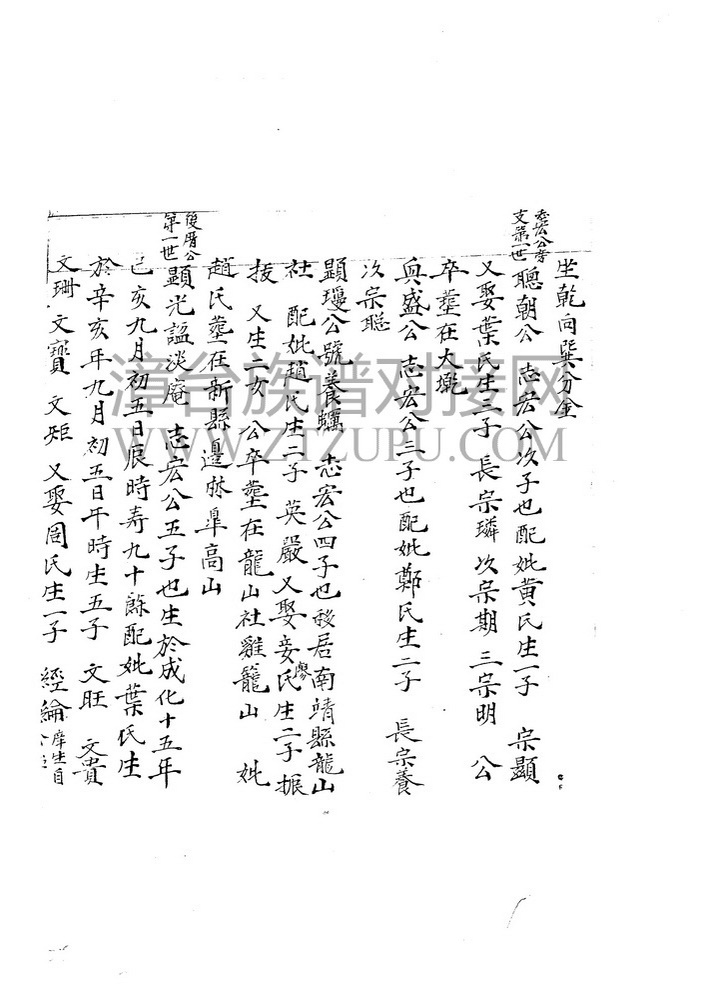 坐乾向巽分金
志宏公房
支第一世
聰朝公 志宏公次子也配妣黃氏生一子 宗顯
又娶葉氏生三子 長宗璘 次宗期 三宗明 公
卒塟在大壠
興盛公 志宏公三子也配妣鄭氏生二子 長宗養
次宗聰
顯瓊公號養 志宏公四子也移居南靖縣龍山
社 配妣趙氏生二子 英嚴 又娶妾廖氏生二子 振
拔 又生二女 公卒塟在龍山社雞籠山 妣
趙氏塟在新縣邊 高山
後厝公
第一世
顯光諡淡庵 志宏公五子也生於成化十五年
己亥九月初五日辰時寿九十餘配妣葉氏生
於辛亥年九月初五日午時生五子 文旺 文貴
文珊 文寶 文矩 又娶周氏生一子 經綸 庠生自
漳台族谱对接网
WWW.ZTZUPU.COM